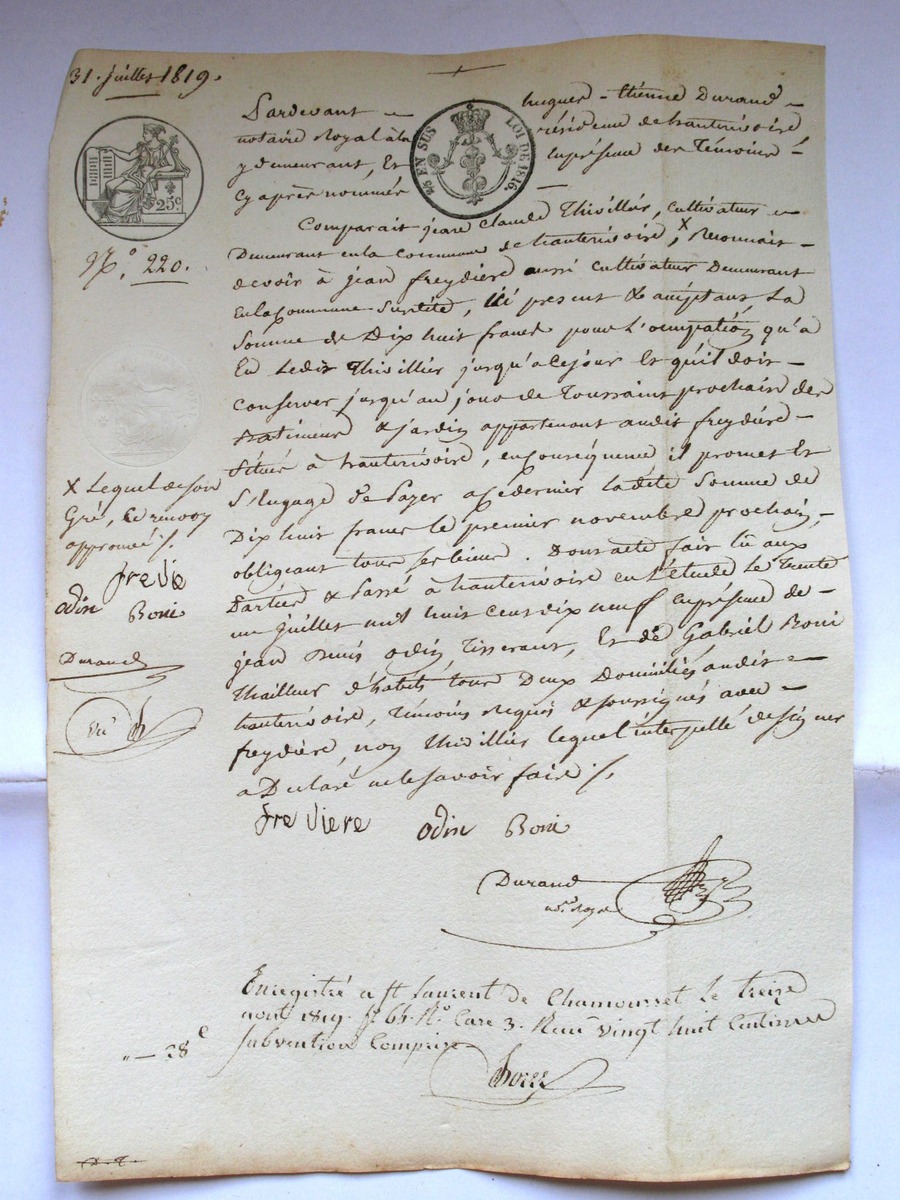 31. Juillet 1819.
Pardevant hugues-Etienne Durand
notaire Royal à la résidence de hauterivoire
y demeurant, Et En présence des Témoins
Cy après nommés
25 EN SUS LOI DE 1816
25c
Comparait jean Claude Thivillier, cultivateur
Demeurant en la Commune de hauterivoire, X Reconnait
devoir à jean freydière aussi cultivateur Demeurant
En la Commune Susdite, ici present & acceptant La
Somme de Dix huit francs pour L'occupation qu'a
Eu Ledit Thivillier jusqu'a ce jour Et qu'il doit
Conserver jusqu'au jour de Toussaint prochain des
Batiments & jardin appartenant audit freydière
Situés à hauterivoire, en conséquence il promet Et
S'Engage de Payer a ce dernier ladite Somme de
Dix huit francs le premier novembre prochain,
obligeant tous ses biens. Dont acte fait lû aux
Parties & Passé à hauterivoire en L'étude Le Trente
un juillet mil huit cent dix neuf en présence de
jean odin Tisserant, Et de Gabriel Boni
Thailleur d'habits tous Deux Domiciliés audit
hauterivoire, Témoins Requis & soussignés avec
freydière, non Thivillier lequel interpellé de signer
a Declaré ne le savoir faire ./.
No. 220.
X Lequel de son
Gré, Ce renvoy
approuvé ./.
freVie
odin Boni
Durand
freViere odin Boni
Durand
Enregistré a St Laurent de Chamousset Le treize
aout 1819. fo 65. Ro Case 3. Reçu vingt huit Centimes
Subvention Comprise
"—28c